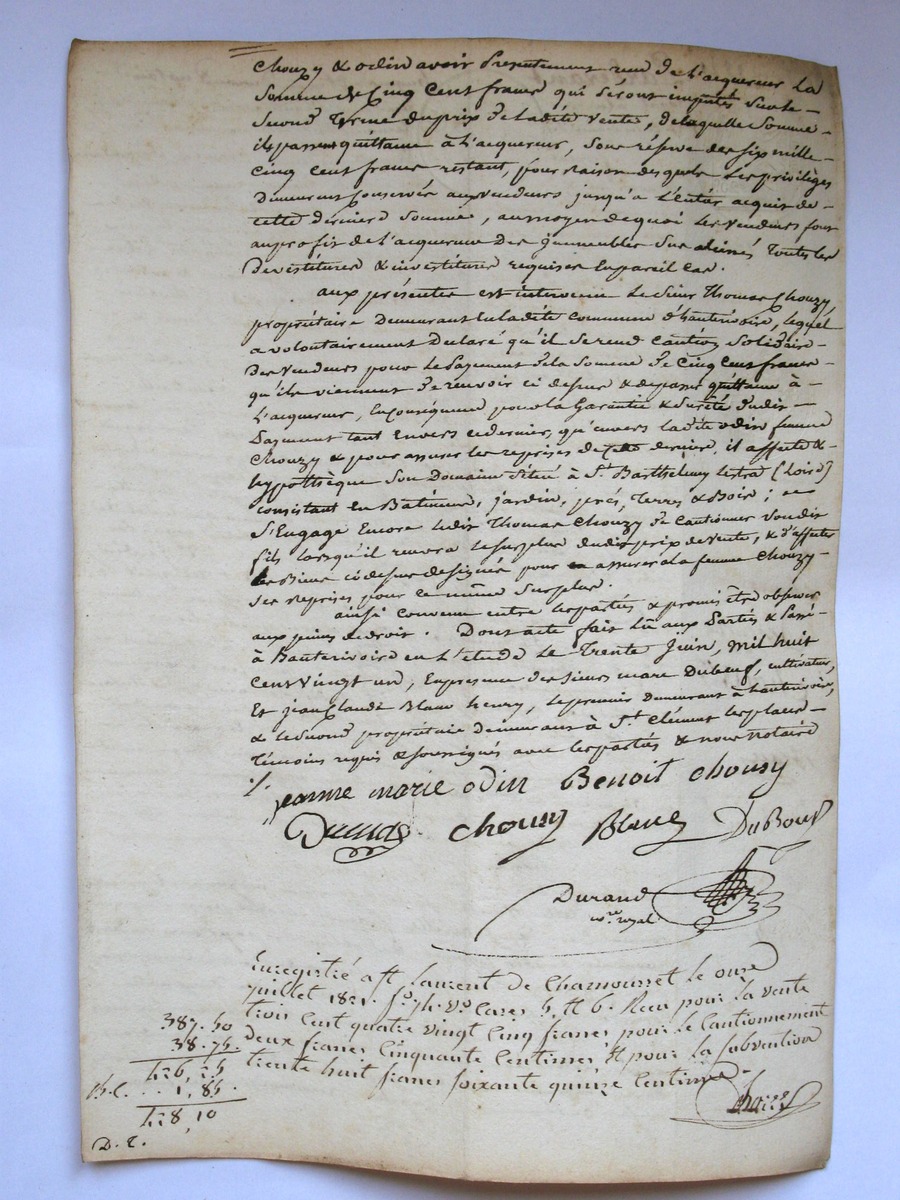 Chouzy & odin avoir présentement reçu de l'acquereur la
Somme de Cinq Cent francs qui seront imputés sur le
Second terme du prix de ladite vente, de laquelle Somme
ils passent quittance à l'acquereur, sous réserve des six mille
Cinq cent francs restant, pour raison desquels les privilèges
demeurent conservés aux vendeurs jusqu'à l'entier acquit de
cette derniere Somme, au moyen de quoi les vendeurs font
au profit de l'acquereur des immeubles sus toutes les
devestitures & investitures requises en pareil cas.
aux présentes est intervenu le Sieur Thomas Chouzy,
propriétaire demeurant en ladite commune d'hauterivoire, lequel
a volontairement déclaré qu'il se rend caution solidaire
des vendeurs pour le payement de la Somme de Cinq Cent francs
qu'ils viennent de recevoir ci dessus & de passer quittance à
l'acquereur, en conséquence pour la Garantie & Sureté dudit
payement tant envers ce dernier, qu'envers ladite odin femme
Chouzy & pour assurer les reprises de cette derniere, il affecte &
hypothèque son Domaine situé à St. Barthelemy lestra (Loire)
consistant en Bâtimens, jardin, prés, terres & Bois;
S'Engage Encore ledit Thomas Chouzy de cautionner sondit
fils lorsqu'il recevra le surplus dudit prix de vente, & d'affecter
les Biens ci dessus designés pour assurer à la femme Chouzy
ses reprises pour ce même surplus.
ainsi convenu entre les parties & promis être observé
aux peines de droit. Dont acte fait lu aux Parties & Passé
à hauterivoire en l'etude le Trente Juin, mil huit
Cent Vingt un, En presence des sieurs marc Duboeuf, cultivateur,
Et Jean Claude Blanc henry, le premier demeurant à hauterivoire,
& le second propriétaire demeurant à St. Clément les places
Témoins requis & soussignés avec les parties & nous notaire
./.
jeanne marie odin Benoit chousy
chousy Blanc DuBoeuf
Durand
nre. royal
Enregistré a St Laurent de Chamousset le onze
juillet 1821. fo. 74. vo Cases 5 et 6. Reçu pour la vente
trois cent quatre vingt cinq francs pour le Cautionnement
deux francs Cinquante Centimes et pour la subvention
trente huit francs soixante quinze centimes
387.50
38.75.
426,25
1,85
428,10
D. T.